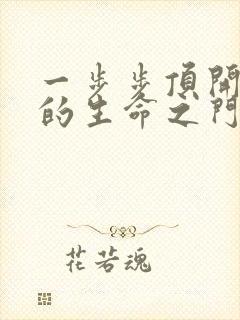 一步步頂開
的生命之門
花若魂